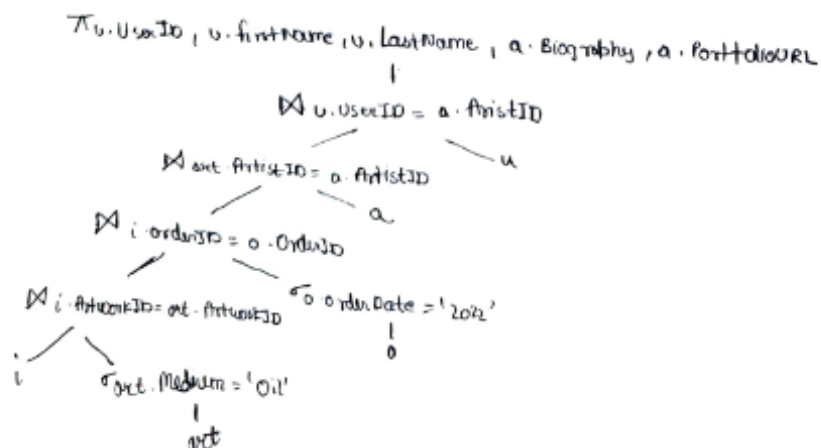 π u.UserID, u.firstName, u.LastName, a.Biography, a.PortfolioURL
⋈ u.UserID = a.AristID
⋈ art.ArtistID = a.ArtistID
u
⋈ i.orderID = o.OrderID
a
⋈ i.ArtworkID = art.ArtworkID
σ o.orderDate = '2022'
o
i
σ art.Medium = 'Oil'
art